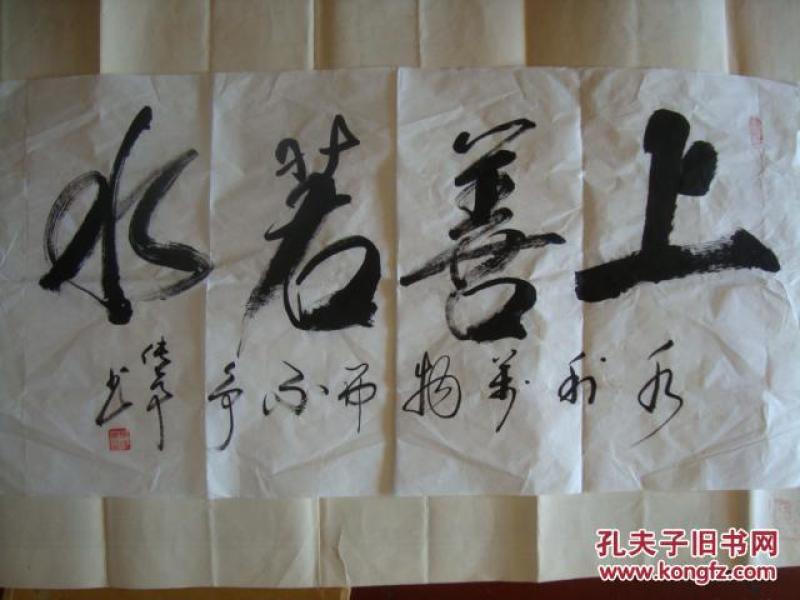 上善若水
水利万物而不争
书
孔夫子旧书网
www.kongfz.com